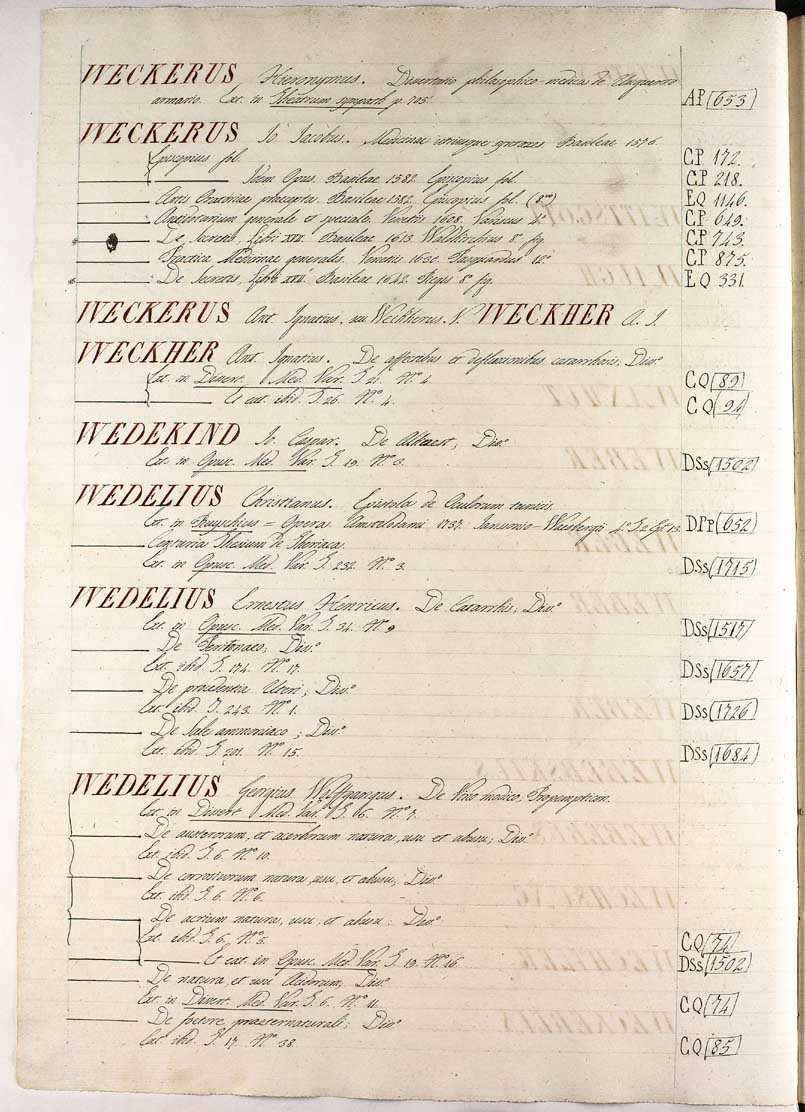 WECKERUS Hieronymus. Dissertatio philosophico-medica de Unguento
armario. Ext. in Theatrum sympath. p. 705. AP 653
WECKERUS Io. Jacobus. Medicinae utriusque syntaxes Basileae 1576.
Episcopius fol. C.P 172.
Idem Opus. Basileae 1582. Episcopius fol. C.P 218.
Artis Oratoriae praecepta. Basileae 1582. Episcopius fol. (8.vo) E Q 1146.
Antidotarium generale et speciale. Venetiis 1608. 4.° C.P 649.
De Secretis, Libri XVII. Basileae 1613. Waldkirchius 8.° fig. C.P 743.
Practica Medicinae generalis. Venetiis 12.° C.P 875.
De Secretis, Libri XVII. Basileae 1642. Regis 8.° fig. E Q 331.
WECKERUS Ant. Ignatius, seu Weckherus. V. WECKHER A. I.
WECKHER Ant. Ignatius. De affectibus et defluxionibus catarrhosis; Diss.°
Ext. in Dissert. Med. Var. T. 21. N.° 4. C Q 89
Et ext. ibid. T. 26. N.° 4. C Q 94
WEDEKIND Io. Caspar. De Alkaest; Diss.°
Ext. in Opusc. Med. Var. T. 19. N.° 3. DSs 1502
WEDELIUS Christianus. Epistola de Oculorum tunicis.
Ext. in Ruyschius = Opera. Amstelodami 1737. Janssonio-Waesbergii 4.° T. 2. Ep. 13. DPp 652
Centuria Thesium de Theriaca.
Ext. in Opusc. Med. Var. T. 232. N.° 3. DSs 1715
WEDELIUS Ernestus Henricus. De Catarrhis; Diss.°
Ext. in Opusc. Med. Var. T. 34. N.° 9 DSs 1517
De Peritonaeo; Diss.°
Ext. ibid. T. 174. N.° 17. DSs 1657
De procidentia Uteri; Diss.°
Ext. ibid. T. 243. N.° 1. DSs 1726
De Sale ammoniaco; Diss.°
Ext. ibid. T. 201. N.° 15. DSs 1684
WEDELIUS Georgius Wolffgangus. De Vino modico; Propempticon.
Ext. in Dissert. Med. Var. T. 6. N.° 7.
De austerorum, et acerborum natura, usu et abusu; Diss.°
Ext. ibid. T. 6. N.° 10.
De natura, usu, et abusu; Diss.°
Ext. ibid. T. 6. N.° 6.
De acrium natura, usu, et abusu; Diss.°
Ext. ibid. T. 6. N.° 5. C Q 74
Et ext. in Opusc. Med. Var. T. 19. N.° 16. DSs 1502
De natura, et usu Acidorum; Diss.°
Ext. in Dissert. Med. Var. T. 6. N.° 11. C Q 74
De foetore praeternaturali; Diss.°
Ext. ibid. T. 17. N.° 38. C Q 85